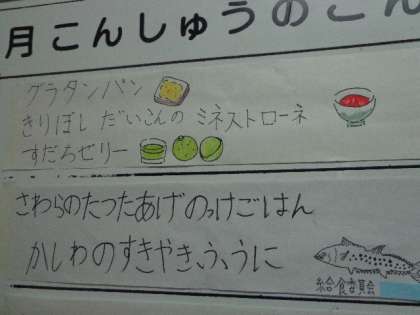 月こんしゅうのこん
グラタンパン
きりぼしだいこんの ミネストローネ
すだちゼリー
さわらのたつたあげのっけごはん
かしわのすきやきふうに
給食委員会